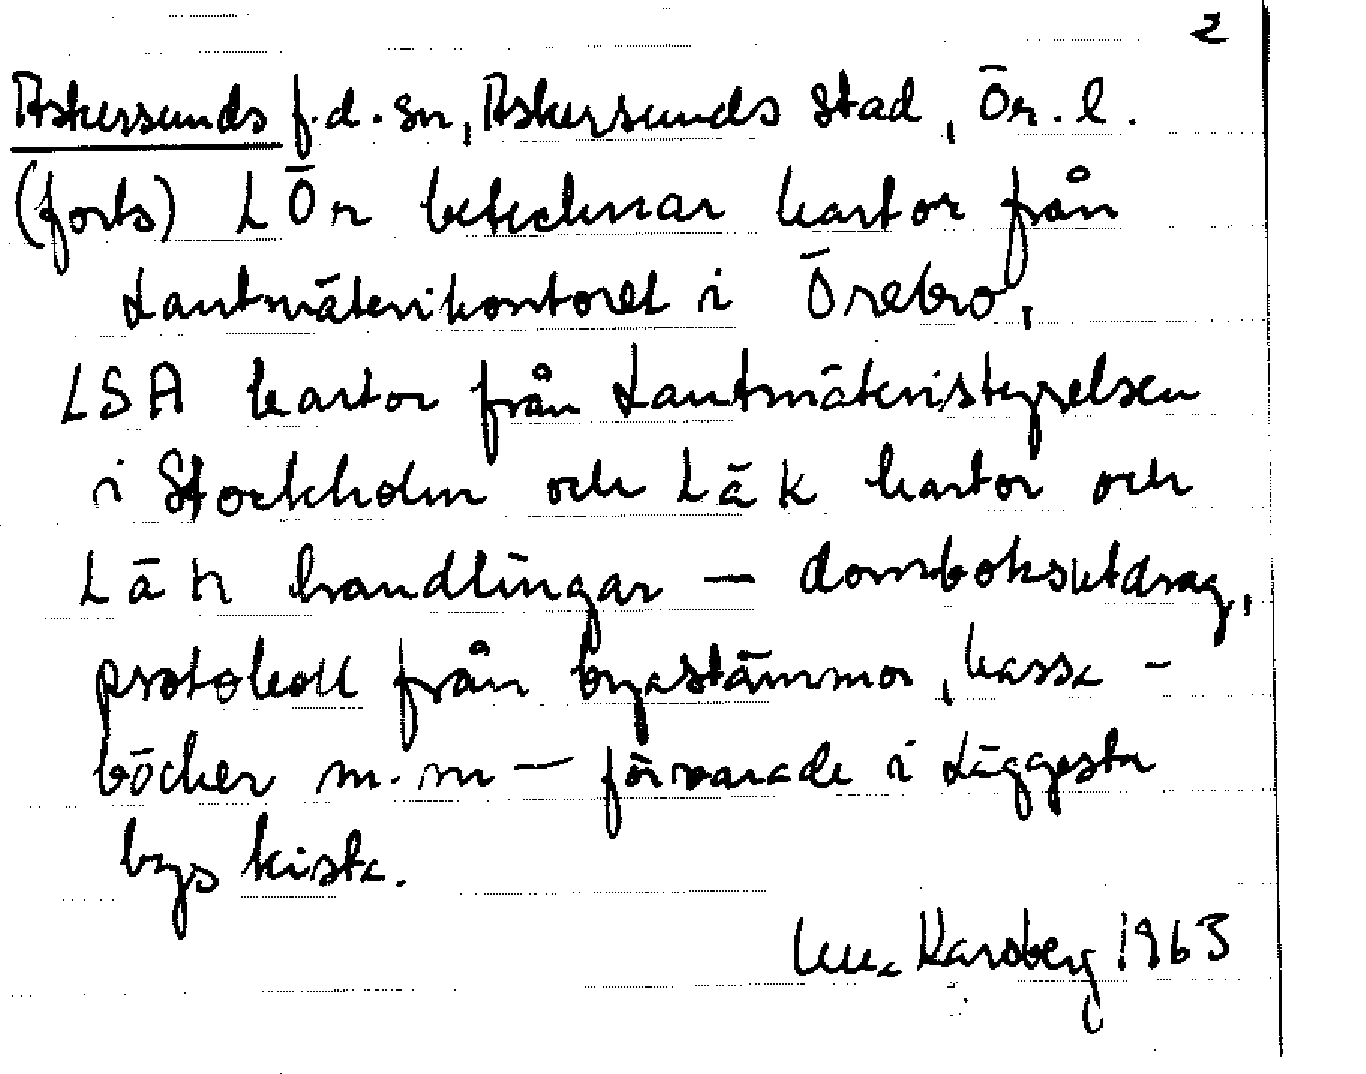 2
Askersunds f.d. sn, Askersunds stad, Ör. l.
(forts) LÖr betecknar kartor från
Lantmäterikontoret i Örebro,
LSA kartor från Lantmäteristyrelsen
i Stockholm och LäK kartor och
Läh handlingar — domboksutdrag,
protokoll från byastämmor, kassa-
böcker m.m — förvarade i Läggesta
bys kista.
Karsberg 1963